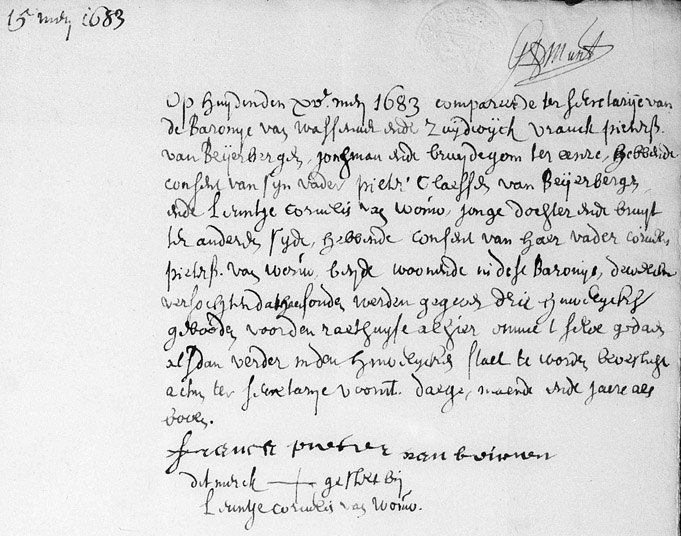 15 meij 1683
Op Huijden den xve. meij 1683 compareerde ter secretarije van
de Baronije van Wassenaer ende Zuijdwijck Vranck pieterss
van Beijerbergen, jonghman ende bruijdegom ter eenre, hebbende
consent van sijn vader pieter Claessen van Beijerbergen
ende Leuntje Cornelis van Wouw, jonge dochter ende bruijt
ter anderen sijde, hebbende consent van haer vader Cornelis
pieterss. van Wouw, beijde woonende in dese Baronije, dewelcke
versochten dat haer souden werden gegeven drie huwelijckse
geboden voor den raethuijse alhier omme 't selve gedaen
alsdan verder in den huwelijcken staet te worden bevesticht
actum ter secretarije voornt. daege, maende ende jaere als
boven.
franck pieter van beierren
dit merck gestelt bij
Leuntje Cornelis van Wouw.